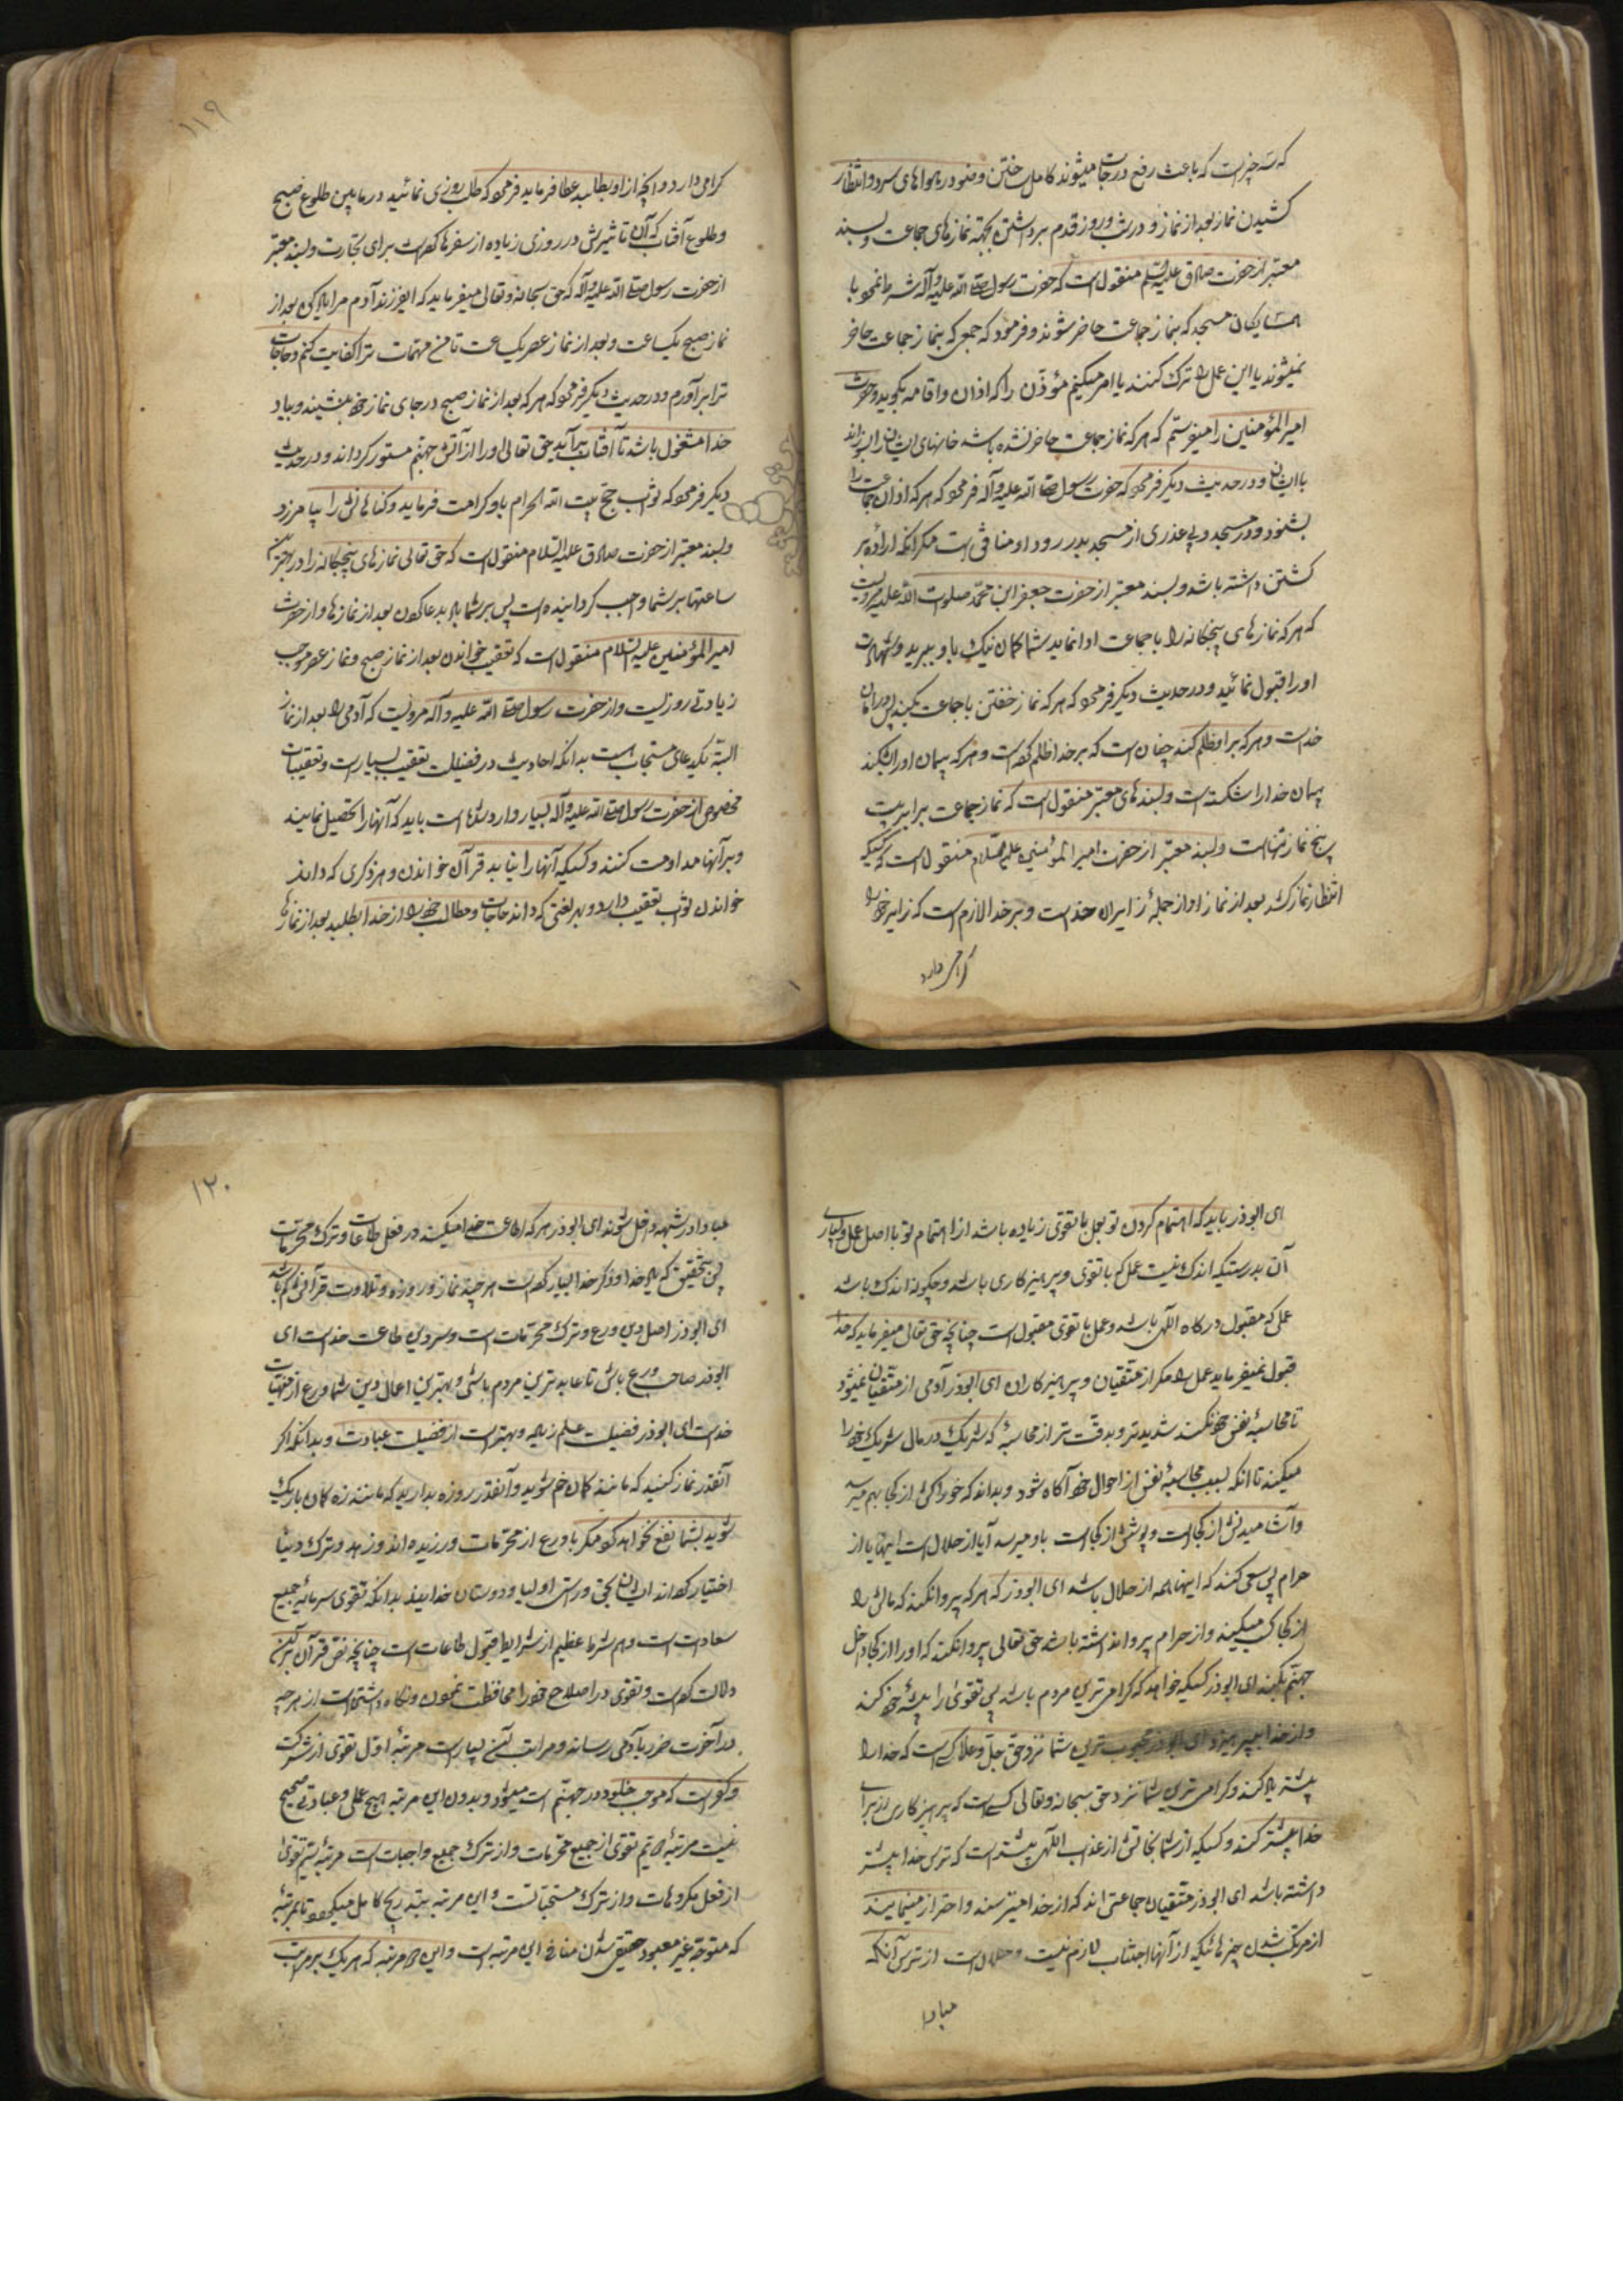 که سه چیز است که باعث رفع درجات میشوند کامل ساختن وضو در هواهای سرد و انتظار
کشیدن نماز بعد از نماز و در شب و روز قدم برداشتن بجهته نمازهای جماعت و بسند
معتبر از حضرت صادق علیه السلم منقول است که حضرت رسول صلی الله علیه وآله شرط نمود با
همسایکان مسجد که بنماز جماعت حاضر شوند و فرمود که جمعی که بنماز جماعت حاضر
نمیشوند یا این عمل را ترک کنند یا امر میکنم مؤذن را که اذان و اقامه بگوید و حضرت
امیر المؤمنین را میفرستم که هر که نماز جماعت حاضر نشده باشد خانهای ایشان را بسوزاند
با ایشان و در حدیث دیکر فرمود که حضرت رسول صلی الله علیه وآله فرمود که هر که اذان جماعت را
بشنود و در مسجد و بی عذری از مسجد بدر رود او منافق است مکر آنکه اراده بر
کشتن داشته باشد و بسند معتبر از حضرت جعفر ابن محمد صلوات الله علیه مرویست
که هر که نمازهای پنجکانه را با جماعت ادا نماید شما کمان نیک باو ببرید و شهادت
او را قبول نمائید و در حدیث دیکر فرمود که هر که نماز خفتن با جماعت بکند پس در امان
خداست و هر که بر او ظلم کند چنان است که بر خدا ظلم کرده است و هر که پیمان او را بشکند
پیمان خدا را شکسته است و بسندهای معتبر منقول است که نماز جماعت برابر بیست
پنج نماز تنهاست و بسند معتبر از حضرت امیر المؤمنین علیه السلام منقول است که کسیکه
انتظار نماز کشد بعد از نماز او از جملۀ زایران خداست و بر خدا لازم است که زایر خود را
کرامی دارد
۱۱۹
کرامی دارد و آنچه از او بطلبد عطا فرماید فرمود که طلب روزی نمائید در مابین طلوع صبح
و طلوع آفتاب که آن تاثیرش در روزی زیاده از سفرها کردنست برای تجارت و بسند معتبر
از حضرت رسول صلی الله علیه وآله که حق سبحانه و تعالی میفرماید که ای فرزند آدم مرا یاد کن بعد از
نماز صبح یکساعت و بعد از نماز عصر یکساعت تا من مهمات ترا کفایت کنم و حاجات
ترا برآورم و در حدیث دیکر فرمود که هر که بعد از نماز صبح در جای نماز خود بنشیند و بیاد
خدا مشغول باشد تا آفتاب برآید حق تعالی او را از آتش جهنم مستور کرداند و در حدیث
دیکر فرمود که ثواب حج بیت الله الحرام باو کرامت فرماید و کناهانش را بیامرزد
و بسند معتبر از حضرت صادق علیه السلام منقول است که حق تعالی نمازهای پنجکانه را در بهترین
ساعتها بر شما واجب کردانیده است پس بر شما باد بدعا کردن بعد از نمازها و از حضرت
امیر المؤمنین علیه السلام منقول است که تعقیب خواندن بعد از نماز صبح و نماز عصر موجب
زیادتی روزیست و از حضرت رسول صلی الله علیه وآله مرویست که آدمی را بعد از نماز
البته یکدعای مستجاب هست بدانکه احادیث در فضیلت تعقیب بسیار است و تعقیبات
مخصوص از حضرت رسول صلی الله علیه وآله بسیار وارد شده است باید که آنها را تحصیل نمایند
و بر آنها مداومت کنند و کسیکه آنها را نیابد قرآن خواندن و هر ذکری که داند
خواندن ثواب تعقیب دارد و بهر لغتی که داند حاجات و مطالب خود را از خدا بطلبد بعد از نمازها
ای ابوذر باید که اهتمام کردن تو بعمل با تقوی زیاده باشد از اهتمام تو باصل عمل و بسیاری
آن بدرستیکه اندک نیست عمل که با تقوی و پرهیزکاری باشد و چکونه اندک باشد
عملی که مقبول درکاه الهی باشد و عمل با تقوی مقبول است چنانچه حق تعالی میفرماید که خدا
قبول نمیفرماید عمل را مکر از متقیان و پرهیزکاران ای ابوذر آدمی از متقیان نمیشود
تا محاسبۀ نفس خود نکند شدیدتر و بدقت تر از محاسبۀ که شریک در مال شریک خود را
میکند تا آنکه بسبب محاسبۀ نفس از احوال خود آکاه شود و بداند که خوراکش از کجا بهم میرسد
و آشامیدنش از کجا است و پوشش از کجا است باو میرسد آیا از حلال است اینها یا از
حرام پس سعی کند که اینها همه از حلال باشد ای ابوذر که هر که پروا نکند که مالش را
از کجا کسب میکند و از حرام پروا نداشته باشد حق تعالی پروا نکند که او را از کجا داخل
جهنم بکند ای ابوذر کسیکه خواهد که کرامی ترین مردم باشد پس تقوی را پیشۀ خود کند
و از خدا بپرهیزد ای ابوذر محبوب ترین شما نزد حق جل و علا کسی است که خدا را
بیشتر یاد کند و کرامی ترین شما نزد حق سبحانه و تعالی کسی است که پرهیزکاری از برای
خدا بیشتر کند و کسیکه از شما نجاتش از عذاب الهی بیشتر است که ترس خدا بیشتر
داشته باشد ای ابوذر متقیان جماعتی اند که از خدا میترسند و احتراز مینمایند
از مرتکب شدن چیزهائیکه از آنها اجتناب لازم نیست و حلال است از ترس آنکه
مبادا
۱۲۰
مبادا در شبهه داخل شوند ای ابوذر هر که اطاعت خدا میکند در فعل طاعات و ترک محرمات
پس بتحقیق که یاد خدا و ذکر خدا بسیار کرده است هر چند نماز و روزه و تلاوت قرآنش کم باشد
ای ابوذر اصل دین ورع و ترک محرمات است و سر دین طاعت خداست ای
ابوذر صاحب ورع باش تا عابدترین مردم باشی و بهترین اعمال دین شما ورع از منهیات
خداست ای ابوذر فضیلت علم زیاد و بهتر است از فضیلت عبادت و بدانکه اکر
آنقدر نماز کنید که مانند کمان خم شوید و آنقدر روزه بدارید که مانند زه کمان باریک
شوید بشما نفع نخواهد کرد مکر با ورع از محرمات ورزیده اند و زهد و ترک دنیا
اختیار کرده اند ایشان بحق و راستی اولیا و دوستان خدایند بدانکه تقوی سرمایۀ جمیع
سعادت است و هم شرط عظیم از شرایط قبول طاعات است چنانچه نص قرآن بر این
دلالت کرده است و تقوی در اصلاح خود را محافظت نمودن و نکاه داشتن است از هر چه
در آخرت ضرر بآدمی رساند و مراتب آن بسیار است مرتبۀ اول تقوی از شرک
و کفر است که موجب خلود در جهنم است میشود و بدون این مرتبه هیچ عملی و عبادتی صحیح
نیست مرتبۀ دویم تقوی از جمیع محرمات و از ترک جمیع واجبات است مرتبۀ سیم تقوی
از فعل مکروهات و از ترک مستحباتست و این مرتبه بتدریج کامل میکردد تا بمرتبۀ
که متوجه غیر معبود حقیقی شدن منافی این مرتبه است و این دو مرتبه که هر یک بر مراتب